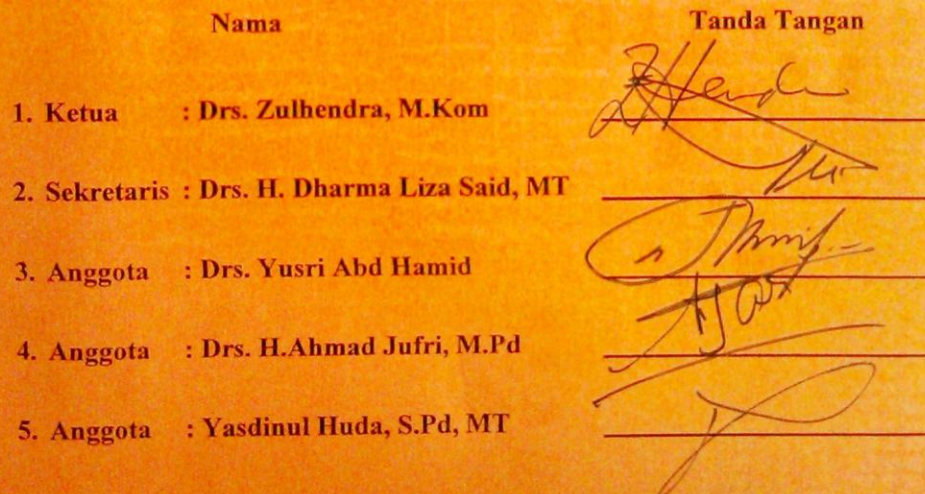 Nama Tanda Tangan
1. Ketua : Drs. Zulhendra, M.Kom
2. Sekretaris : Drs. H. Dharma Liza Said, MT
3. Anggota : Drs. Yusri Abd Hamid
4. Anggota : Drs. H.Ahmad Jufri, M.Pd
5. Anggota : Yasdinul Huda, S.Pd, MT